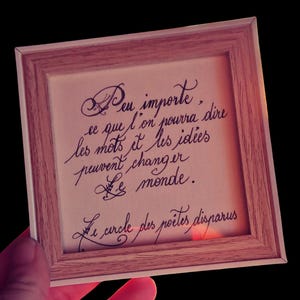 Peu importe,
ce que l'on pourra dire
les mots et les idées
peuvent changer
Le monde.
Le cercle des poètes disparus